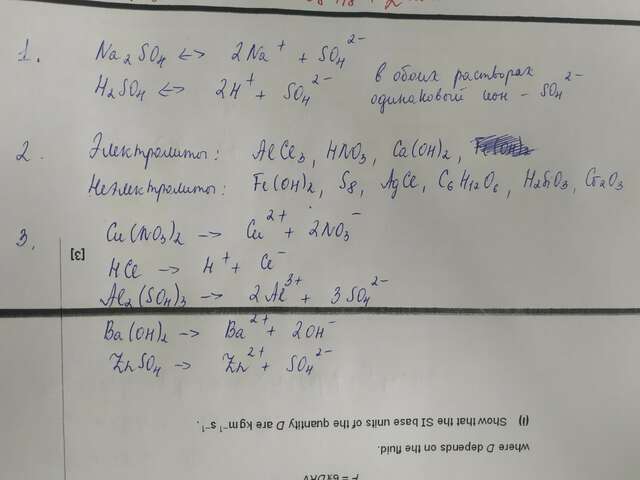 1. Na₂SO₄ <-> 2Na⁺ + SO₄²⁻
H₂SO₄ <-> 2H⁺ + SO₄²⁻
в обоих растворах
одинаковый ион - SO₄²⁻
2. Электролиты: AlCl₃, HNO₃, Ca(OH)₂,
Неэлектролиты: Fe(OH)₂, S₈, AgCl, C₆H₁₂O₆, H₂SiO₃, Cr₂O₃
3. Cu(NO₃)₂ -> Cu²⁺ + 2NO₃⁻
[3]
HCl -> H⁺ + Cl⁻
Al₂(SO₄)₃ -> 2Al³⁺ + 3SO₄²⁻
Ba(OH)₂ -> Ba²⁺ + 2OH⁻
ZnSO₄ -> Zn²⁺ + SO₄²⁻
(i) Show that the SI base units of the quantity D are kg m⁻¹ s⁻¹.
where D depends on the fluid.